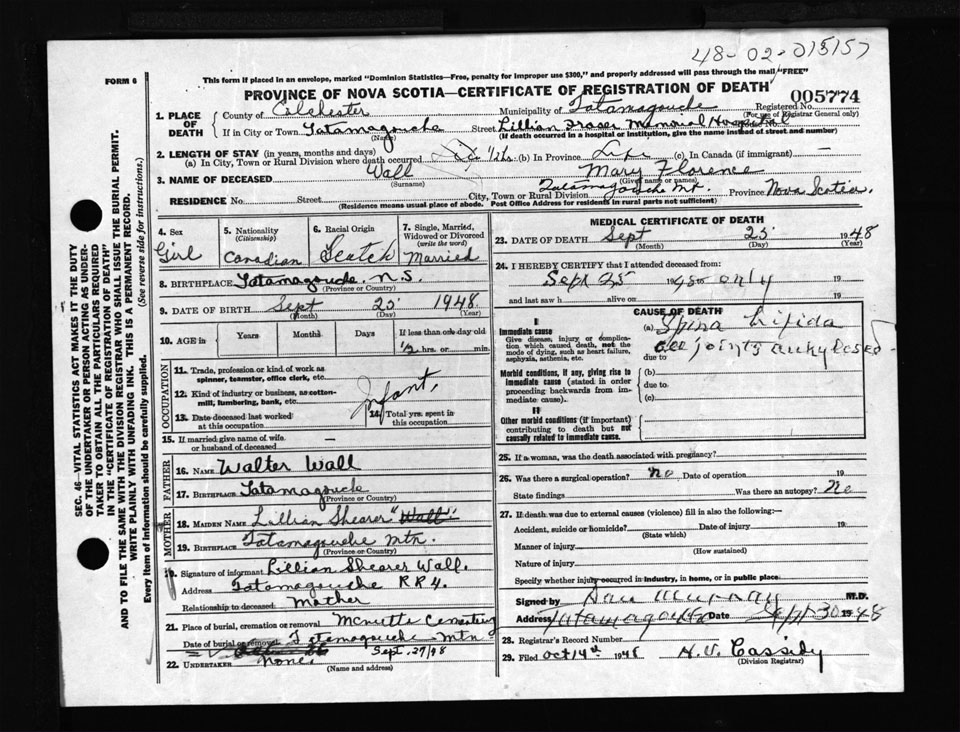 48-02-015157
FORM 6
This form if placed in an envelope, marked "Dominion Statistics—Free, penalty for improper use $300," and properly addressed will pass through the mail "FREE"
PROVINCE OF NOVA SCOTIA—CERTIFICATE OF REGISTRATION OF DEATH
005774
1. PLACE OF DEATH
County of Colchester Municipality of Tatamagouche Registered No.
(For use of Registrar General only)
If in City or Town Tatamagouche Street Lillian Fraser Memorial Hospital No.
(Name) (If death occurred in a hospital or institution, give the name instead of street and number)
2. LENGTH OF STAY (in years, months and days)
(a) In City, Town or Rural Division where death occurred 1/2 hrs. (b) In Province Life (c) In Canada (if immigrant) —
3. NAME OF DECEASED Wall Mary Florence
(Surname) (Given name or names)
RESIDENCE No. Street City, Town or Rural Division Tatamagouche Mt. Province Nova Scotia.
(Residence means usual place of abode. Post Office Address for residents in rural parts not sufficient)
4. Sex
Girl
5. Nationality
(Citizenship)
Canadian
6. Racial Origin
Scotch
7. Single, Married, Widowed or Divorced
(write the word)
Married
8. BIRTHPLACE Tatamagouche, N.S.
(Province or Country)
9. DATE OF BIRTH Sept 25 1948
(Month) (Day) (Year)
10. AGE in Years Months Days If less than one day old
1/2 hrs. or min.
OCCUPATION
11. Trade, profession or kind of work as spinner, teamster, office clerk, etc.
12. Kind of industry or business, as cotton-mill, lumbering, bank, etc.
Infant,
13. Date deceased last worked at this occupation
14. Total yrs. spent in this occupation
15. If married give name of wife or husband of deceased —
FATHER
16. NAME Walter Wall
17. BIRTHPLACE Tatamagouche
(Province or Country)
MOTHER
18. MAIDEN NAME Lillian Shearer "Wall"
19. BIRTHPLACE Tatamagouche Mtn.
(Province or Country)
20. Signature of informant Lillian Shearer Wall.
Address Tatamagouche RR4.
Relationship to deceased Mother
21. Place of burial, cremation or removal McNutts Cemetery
Date of burial or removal Tatamagouche Mtn
Sept. 27/48
22. UNDERTAKER None.
(Name and address)
MEDICAL CERTIFICATE OF DEATH
23. DATE OF DEATH Sept 25 1948
(Month) (Day) (Year)
24. I HEREBY CERTIFY that I attended deceased from:
Sept 25 1948 to only 19
and last saw h alive on 19
CAUSE OF DEATH
I
Immediate cause
Give disease, injury or complication which caused death, not the mode of dying, such as heart failure, asphyxia, asthenia, etc.
(a) Spina bifida
all joints ankylosed
due to
Morbid conditions, if any, giving rise to immediate cause (stated in order proceeding backwards from immediate cause).
(b)
due to
(c)
II
Other morbid conditions (if important) contributing to death but not causally related to immediate cause.
25. If a woman, was the death associated with pregnancy?
26. Was there a surgical operation? no Date of operation 19
State findings Was there an autopsy? No
27. If death was due to external causes (violence) fill in also the following:—
Accident, suicide or homicide? Date of injury 19
(State which)
Manner of injury
(How sustained)
Nature of injury
Specify whether injury occurred in industry, in home, or in public place
Signed by Dan Murray M.D.
Address Tatamagouche Date Sept 30 1948
28. Registrar's Record Number
29. Filed Oct 14th 1948 H.V. Cassidy
(Division Registrar)
SEC. 46—VITAL STATISTICS ACT MAKES IT THE DUTY
OF THE UNDERTAKER OR PERSON ACTING AS UNDER-
TAKER TO OBTAIN ALL THE PARTICULARS REQUIRED
IN THE "CERTIFICATE OF REGISTRATION OF DEATH"
AND TO FILE THE SAME WITH THE DIVISION REGISTRAR WHO SHALL ISSUE THE BURIAL PERMIT.
WRITE PLAINLY WITH UNFADING INK. THIS IS A PERMANENT RECORD.
Every item of information should be carefully supplied. (See reverse side for instructions.)